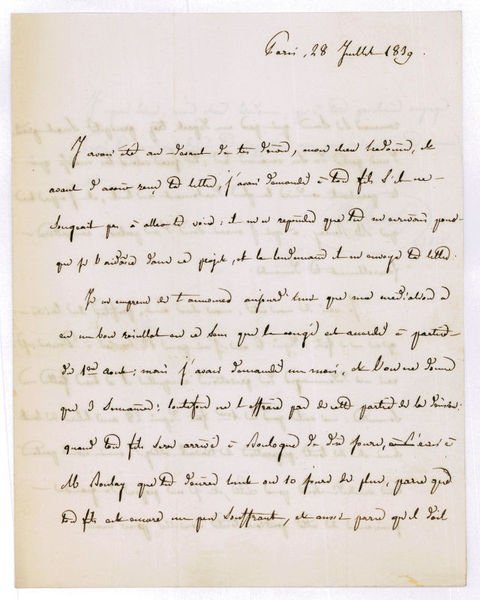 Paris, 28 Juillet 1839.
J'avais été au devant de tes désirs, mon cher
avant d'avoir reçu ta lettre, j'avais demandé à ton fils s'il ne
songeait pas à aller te voir; il m'a répondu que tu m'écrivais pour
que je l'aidasse dans ce projet, et le lendemain il m'envoya ta lettre.
Je m'empresse de t'annoncer aujourd'hui que ma médiation a
eu un bon résultat en ce sens que le congé est accordé à partir
du 1er août; mais j'avais demandé un mois, et l'on ne donne
que 3 semaines; toutefois ne t'effraie pas de cette partie de la
quand ton fils sera arrivé à Boulogne de dix jours, écris à
M Boulay que tu désires huit ou 10 jours de plus, parce que
ton fils est encore un peu souffrant, et aussi parce qu'il doit